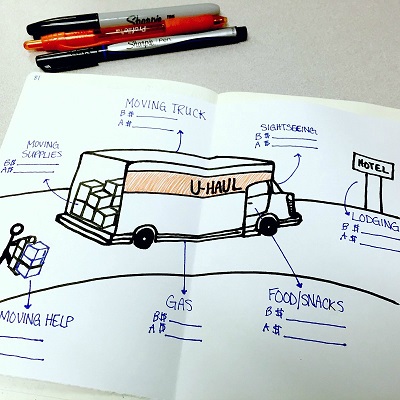 Sharpie
Profile
Sharpie Pen
81
MOVING TRUCK
B $
A $
SIGHTSEEING
B $
A $
MOVING
SUPPLIES
B $
A $
MOTEL
U-HAUL
LODGING
B $
A $
MOVING HELP
GAS
B $
A $
FOOD/SNACKS
B $
A $